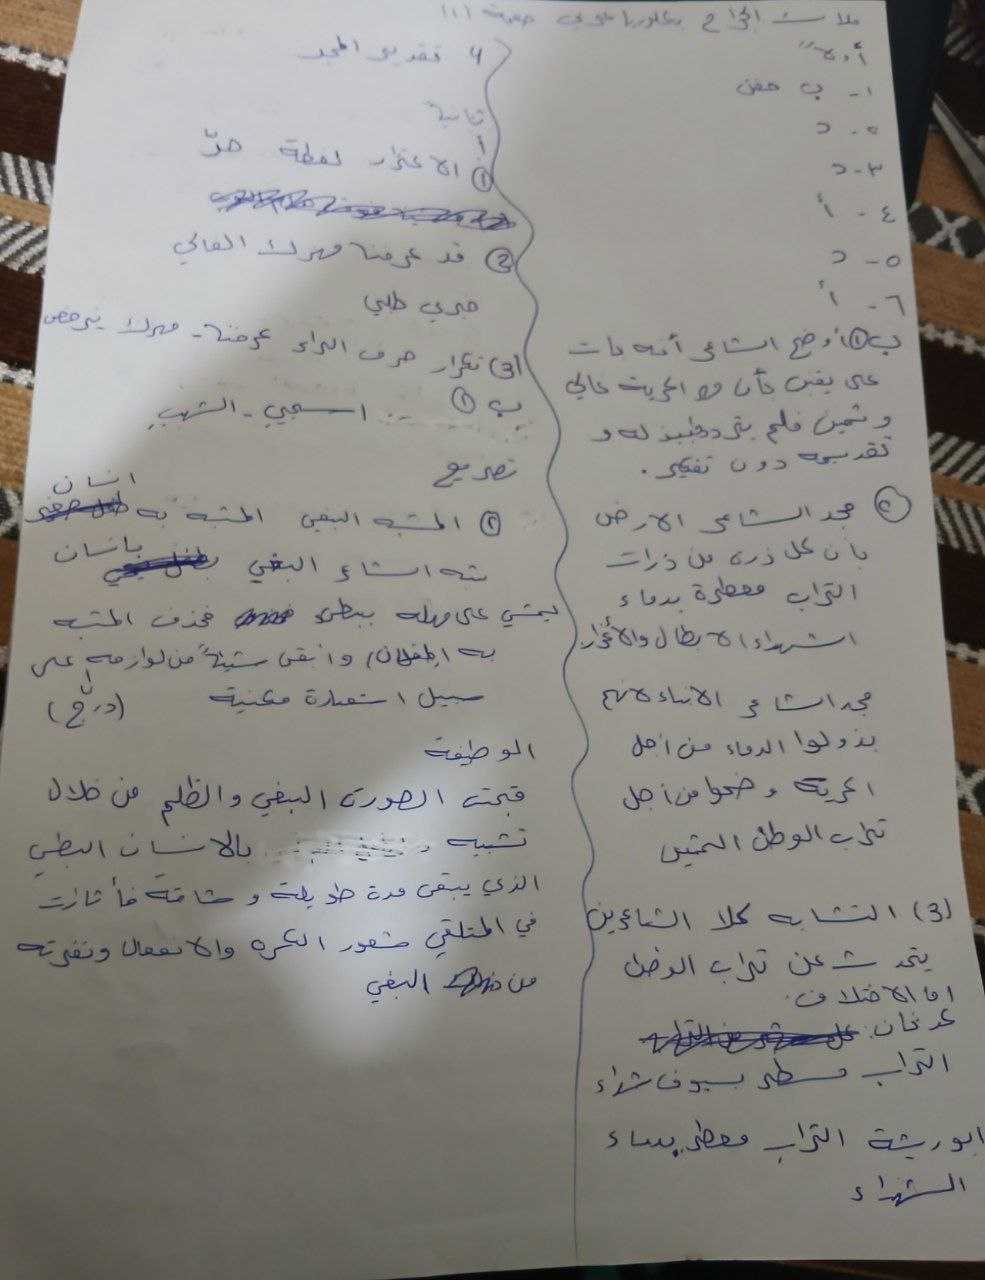 أولاً
١- ب
٢- د
٣- د
٤- أ
٥- د
٦- أ
ب ① أوضح الشاعر أنه مات
على يقين بأن الحرية غالي
وثمين فلم يتردد له و
تقديمه دون تفكير.
② مجد الشاعر الارض
بأن كل ذرة من ذرات
التراب معطرة بدماء
الشهداء الابطال والأحرار
مجد الشاعر الأنهم
بذولوا الدماء من اجل
الحرية وضحوا من اجل
تراب الوطن الثمين
(3) التشابه كلا الشاعرين
يتحدث عن تراب الوطن
اما الاختلاف
عدنان:
التراب بسيوف شهداء
ابو ريشة التراب معطر بدماء
الشهداء
4 المجد
ثانياً
أ
① الاعتزاز لفظة حرّ
② قد عرفنا مهرك الغالي
خبري طلبي
(3) تكرار حرف الراء عرفنا - مهرك
ب ① .. اسحبي - الشهب
تصريع
② المشبه البغي المشبه به انسان
شبه الشاعر البغي بانسان
يمشي على مهله ببطىء فحذف المشبه
به (انسان) وابقى شيئاً من لوازمه على
سبيل استعارة مكنية (درج)
الوظيفة
قبحت الصورة البغي والظلم من خلال
تشبيه بالانسان البطي
الذي يبقى مدة طويلة وشاقة فأثارت
في المتلقي شعور الكره والانفعال ونفرته
من البغي